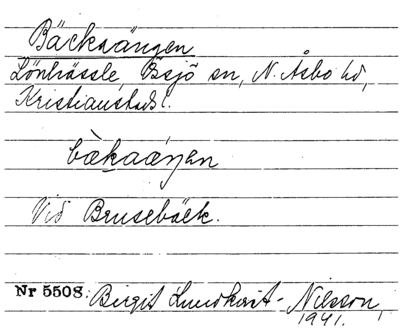 Bäckaängen
Lönhässle, Össjö sn, N. Åsbo hd,
Kristianstads l.
bàkaáŋen
Vid Brusebäck.
Nr 5508. Birgit Lundkvist-Nilsson,
1941.